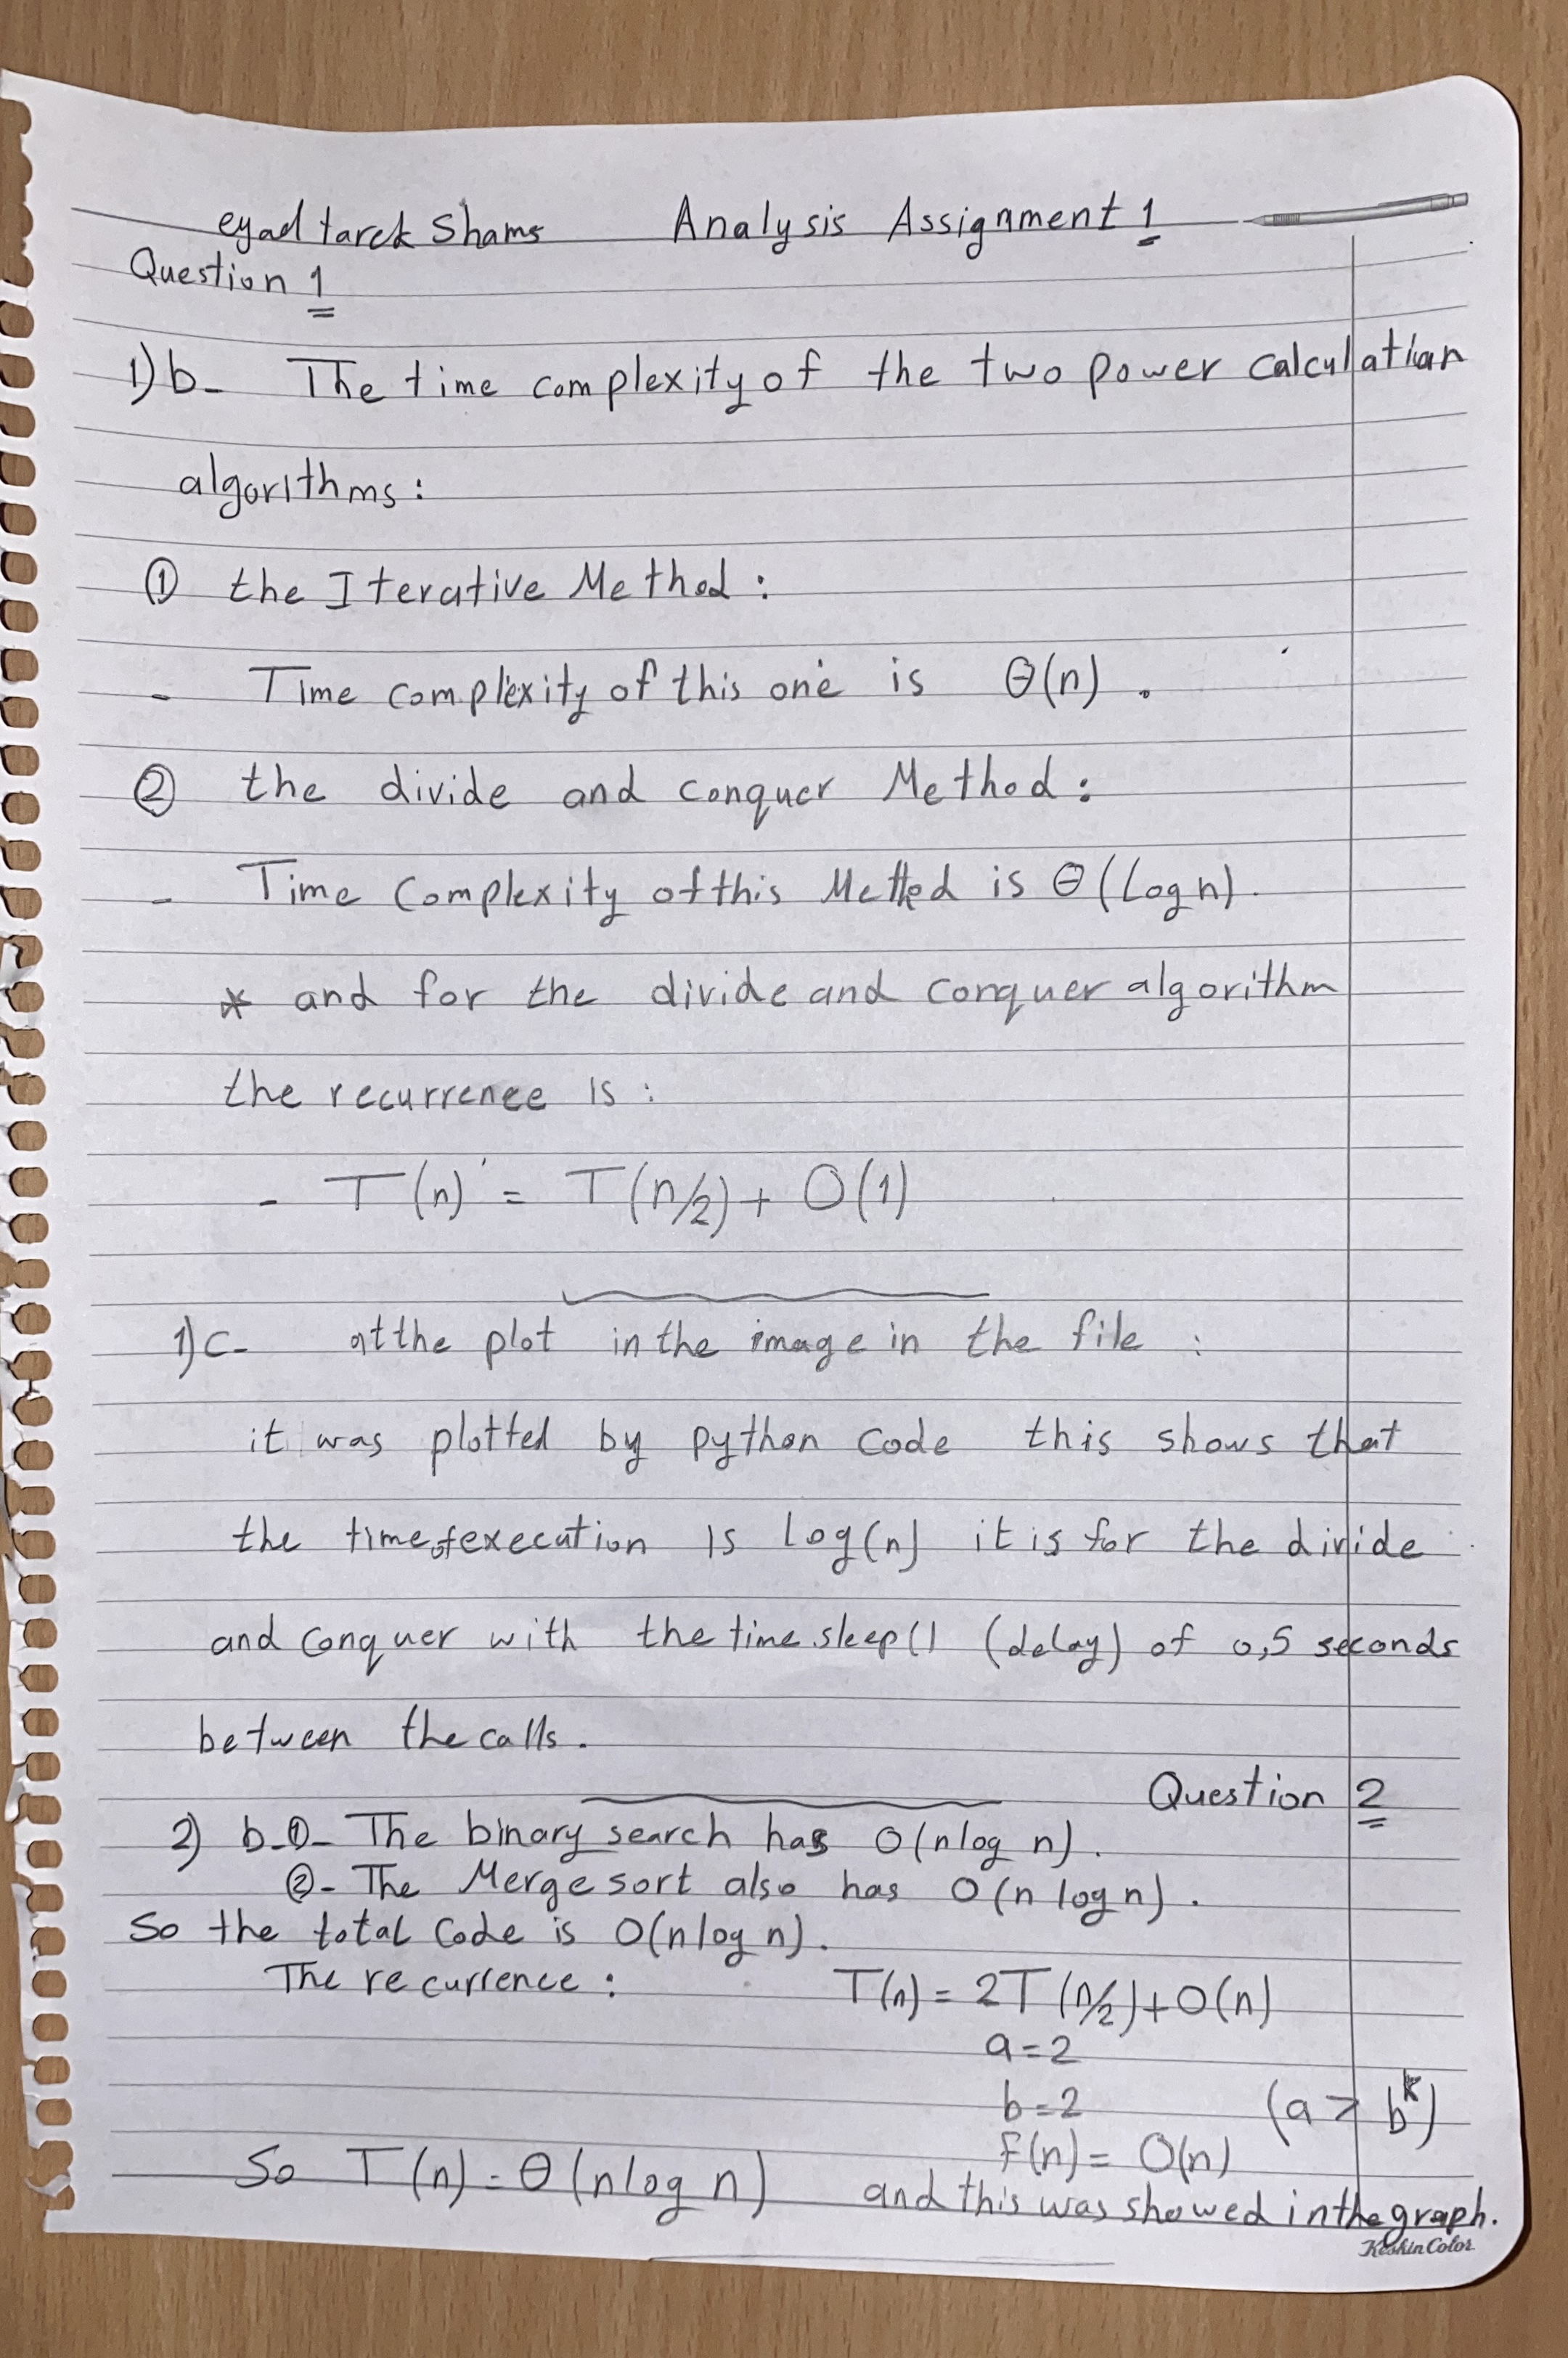 eyad tarek Shams Analysis Assignment 1
Question 1
1) b- The time complexity of the two power calculation
algorithms:
① the Iterative Method:
- Time complexity of this one is Θ(n).
② the divide and conquer Method:
- Time Complexity of this Method is Θ(Log n).
* and for the divide and conquer algorithm
the recurrence is:
- T(n) = T(n/2) + O(1)
1) c- at the plot in the image in the file :
it was plotted by python code this shows that
the time of execution is log(n) it is for the divide
and conquer with the time.sleep() (delay) of 0,5 seconds
between the calls.
Question 2
2) b-①- The binary search has O(nlog n).
②- The Merge sort also has O(n log n).
So the total Code is O(nlog n).
The recurrence: T(n) = 2T(n/2)+O(n)
a=2
b=2 (a > b^k)
F(n) = O(n)
So T(n) = Θ(nlog n) and this was showed in the graph.
KeskinColor